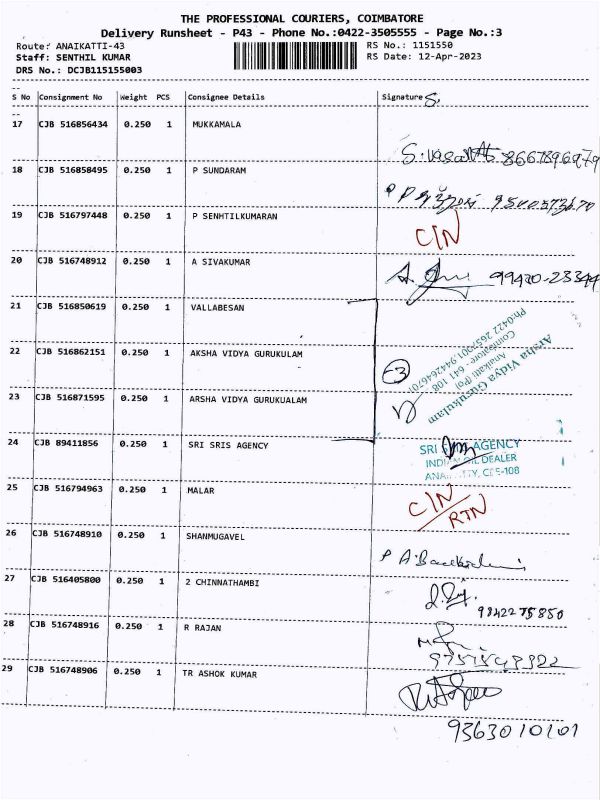 THE PROFESSIONAL COURIERS, COIMBATORE
Delivery Runsheet - P43 - Phone No.:0422-3505555 - Page No.:3
Route: ANAIKATTI-43
RS No.: 1151550
Staff: SENTHIL KUMAR
RS Date: 12-Apr-2023
DRS No.: DCJB115155003
S No Consignment No Weight PCS Consignee Details Signature S.
17 CJB 516856434 0.250 1 MUKKAMALA
8667896979
18 CJB 516858495 0.250 1 P SUNDARAM
19 CJB 516797448 0.250 1 P SENHTILKUMARAN
C/N
20 CJB 516748912 0.250 1 A SIVAKUMAR
99420-23344
21 CJB 516850619 0.250 1 VALLABESAN
22 CJB 516862151 0.250 1 AKSHA VIDYA GURUKULAM
Arsha Vidya Gurukulam
Anaikatti (PO)
Coimbatore - 641 108
23 CJB 516871595 0.250 1 ARSHA VIDYA GURUKUALAM
24 CJB 89411856 0.250 1 SRI SRIS AGENCY
SRI AGENCY
DEALER
25 CJB 516794963 0.250 1 MALAR
C/N
RTN
26 CJB 516748910 0.250 1 SHANMUGAVEL
27 CJB 516405800 0.250 1 2 CHINNATHAMBI
9842275850
28 CJB 516748916 0.250 1 R RAJAN
29 CJB 516748906 0.250 1 TR ASHOK KUMAR
9363010101